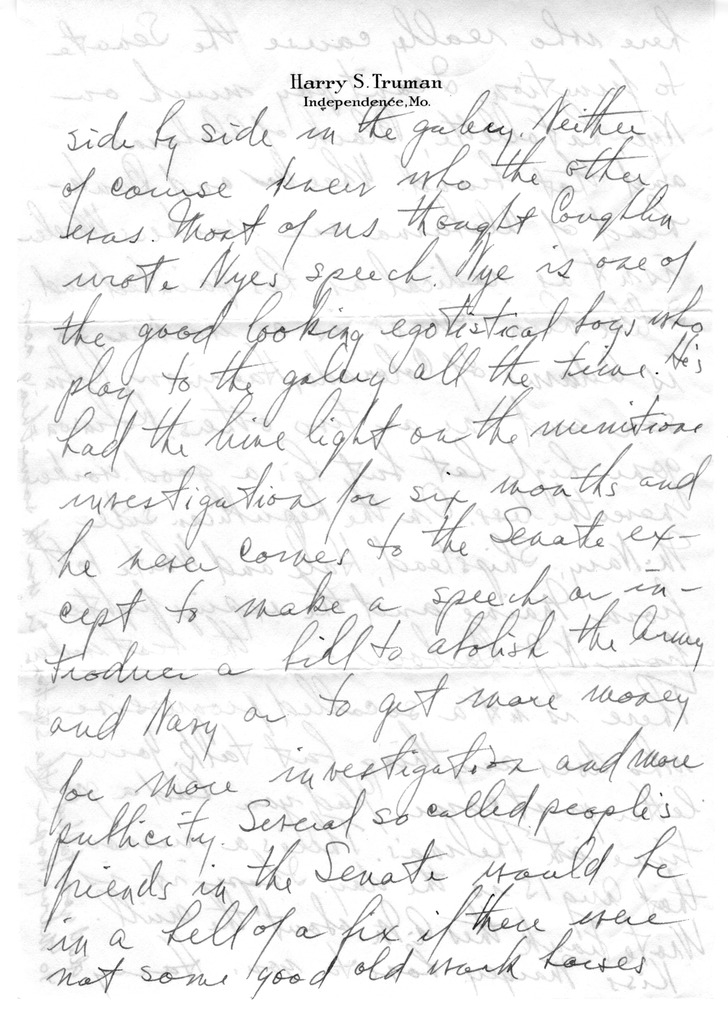 Harry S. Truman
Independence, Mo.
side by side in the galery. Neither
of course knew who the other
was. Most of us thought Coughlin
wrote Nyes speech. Nye is one of
the good looking egotistical boys who
play to the galery all the time. He's
had the lime light on the munitions
investigation for six months and
he never comes to the Senate ex-
cept to make a speech or in-
troduce a bill to abolish the Army
and Navy or to get more money
for more investigation and more
publicity. Several so called people's
friends in the Senate would be
in a hell of a fix if there were
not some good old work horses